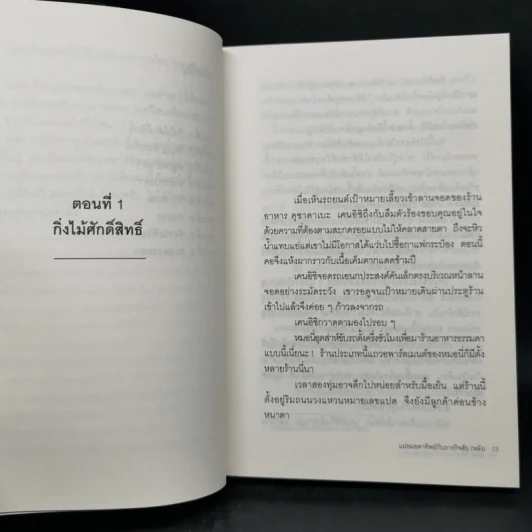 ตอนที่ 1
กิ่งไม้ศักดิ์สิทธิ์
เมื่อเห็นรถยนต์เป้าหมายเลี้ยวเข้าลานจอดของร้าน
อาหาร คุซาคาเบะ เคนอิชิถึงกับลืมตัวร้องขอบคุณอยู่ในใจ
ด้วยความที่ต้องตามสะกดรอยแบบไม่ให้คลาดสายตา ถึงจะหิว
น้ำแทบแย่แต่เขาไม่มีโอกาสได้แวบไปซื้อกาแฟกระป๋อง ตอนนี้
คอจึงแห้งผากราวกับเนื้อเค็มตากแดดข้ามปี
เคนอิชิจอดรถเอนกประสงค์คันเล็กตรงบริเวณหน้าลาน
จอดอย่างระมัดระวัง เขารอดูจนเป้าหมายเดินผ่านประตูร้าน
เข้าไปแล้วจึงค่อย ๆ ก้าวลงจากรถ
เคนอิชิกวาดตามองไปรอบ ๆ
หมอนี่อุตส่าห์ขับรถตั้งครึ่งชั่วโมงเพื่อมาร้านอาหารธรรมดา
แบบนี้เนี่ยนะ! ร้านประเภทนี้แถวอพาร์ตเมนต์ของหมอนี่ก็มีตั้ง
หลายร้านนี่นา
เวลาสองทุ่มอาจดึกไปหน่อยสำหรับมื้อเย็น แต่ร้านนี้
ตั้งอยู่ริมถนนวงแหวนหมายเลขแปด จึงยังมีลูกค้าค่อนข้าง
หนาตา
13